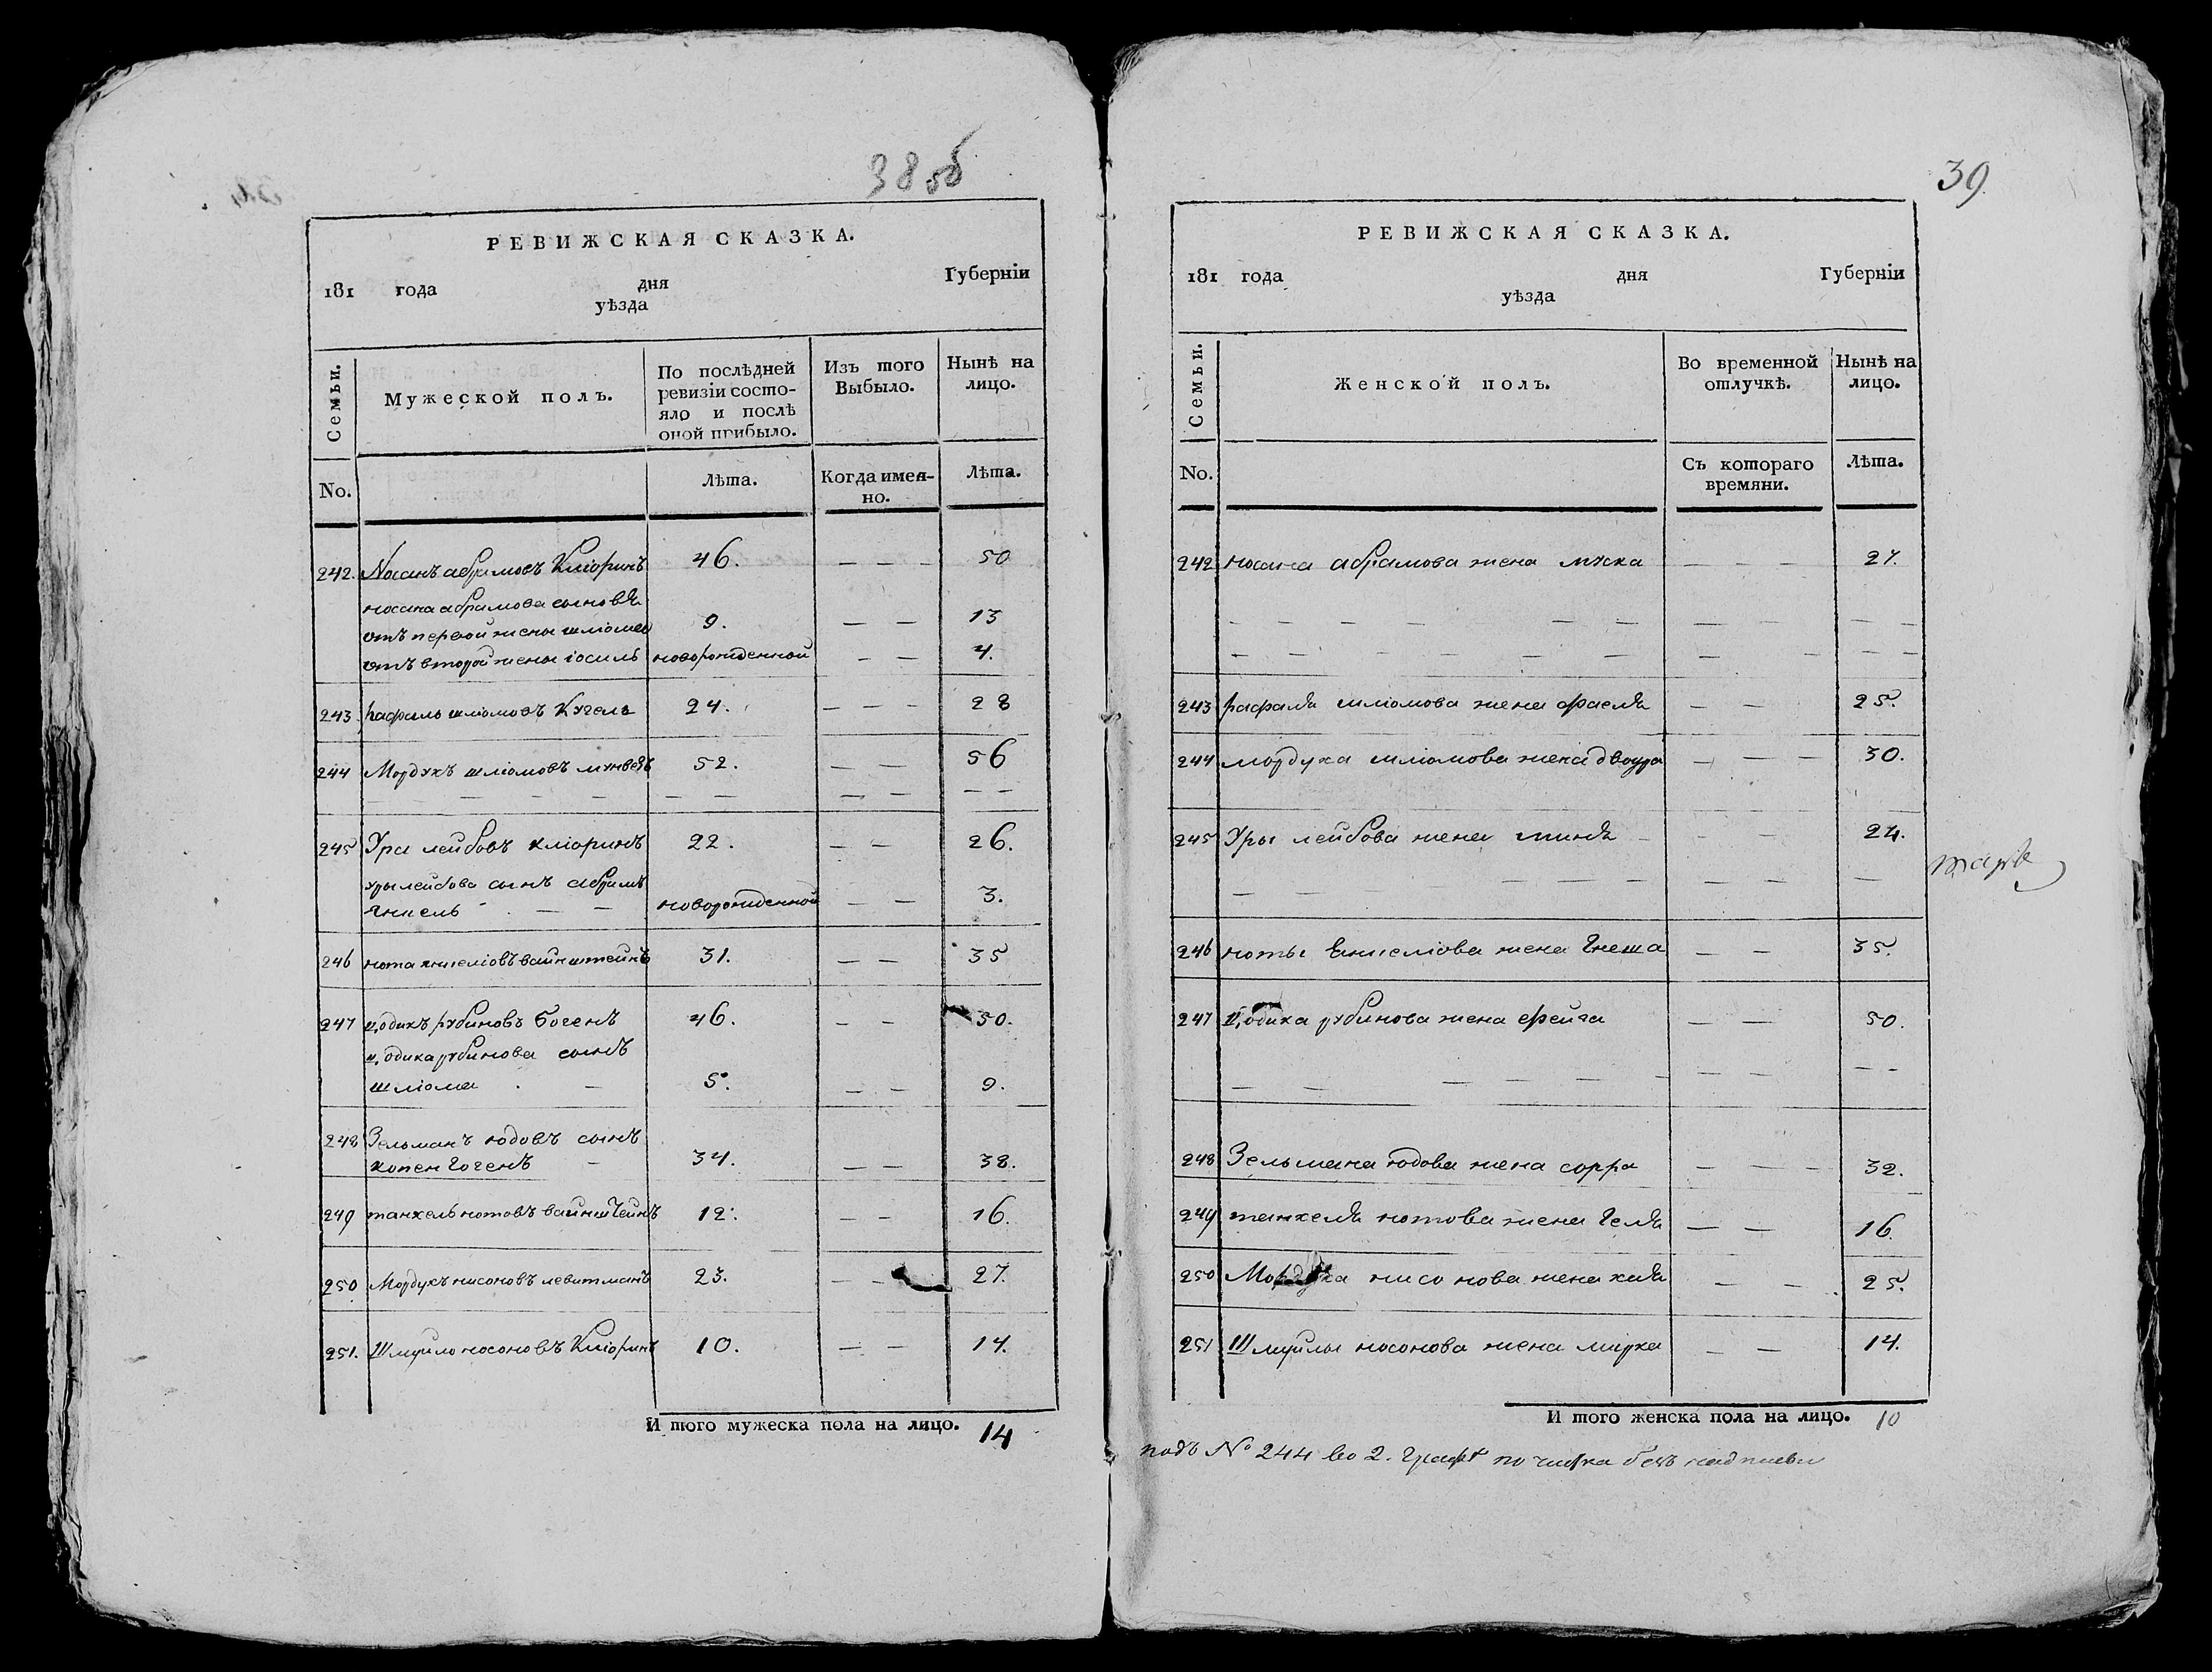 38 об
РЕВИЖСКАЯ СКАЗКА.
181 года дня Губернiи
уѣзда
Семьи.
Мужеской полъ.
По послѣдней ревизiи состо-
яло и послѣ
оной прибыло.
Изъ того
Выбыло.
Нынѣ на
лицо.
No.
Лѣта.
Когда имен-
но.
Лѣта.
242. Носанъ абрамовъ Клiоринъ 46. — — — 50
носана абрамова сыновя
отъ первой жены шлiома 9. — — 13
отъ второй жены iосиль новорожденной — — 4.
243 рафаль шлiомовъ Кугель 24. — — — 28
244 Мордухъ шлiомовъ 52. — — 56
245 Ура лейбовъ клiоринъ 22. — — 26.
уры лейбова сынъ абрамъ
янкель — — новорожденной — — 3.
246 нота янкелiовъ вайнштейнъ 31. — — 35
247 цодикъ рубиновъ 46. — — 50.
цодика рубинова сынъ
шлiома — 5. — — 9.
248 Зельманъ юдовъ сынъ
34. — — 38.
249 танхель нотовъ вайнштейнъ 12. — — 16.
250 Мордухъ нисоновъ левитманъ 23. — — 27.
251. Шмуйло носоновъ Клiоринъ 10. — — 14.
И того мужеска пола на лицо. 14
39.
РЕВИЖСКАЯ СКАЗКА.
181 года дня Губернiи
уѣзда
Семьи.
Женской полъ.
Во временной
отлучкѣ.
Нынѣ на
лицо.
No.
Съ котораго
времяни.
Лѣта.
242 носана абрамова жена муска — — — 27.
243 рафаля шлiомова жена фраеля — — 25.
244 мордуха шлiомова жена двойра — — — 30.
245 Уры лейбова жена миня — — — 24.
246 ноты Енкелiова жена Гнеша — — 35.
247 цодика рубинова жена фейга — — 50.
248 Зельмана юдова жена сорра — — — 32.
249 танхеля нотова жена Геля — — 16.
250 Мордуха нисонова жена хая — — 25.
251 Шмуйлы носонова жена мирка — — 14.
И того женска пола на лицо. 10
подъ № 244 во 2. графѣ почистка безъ надписки